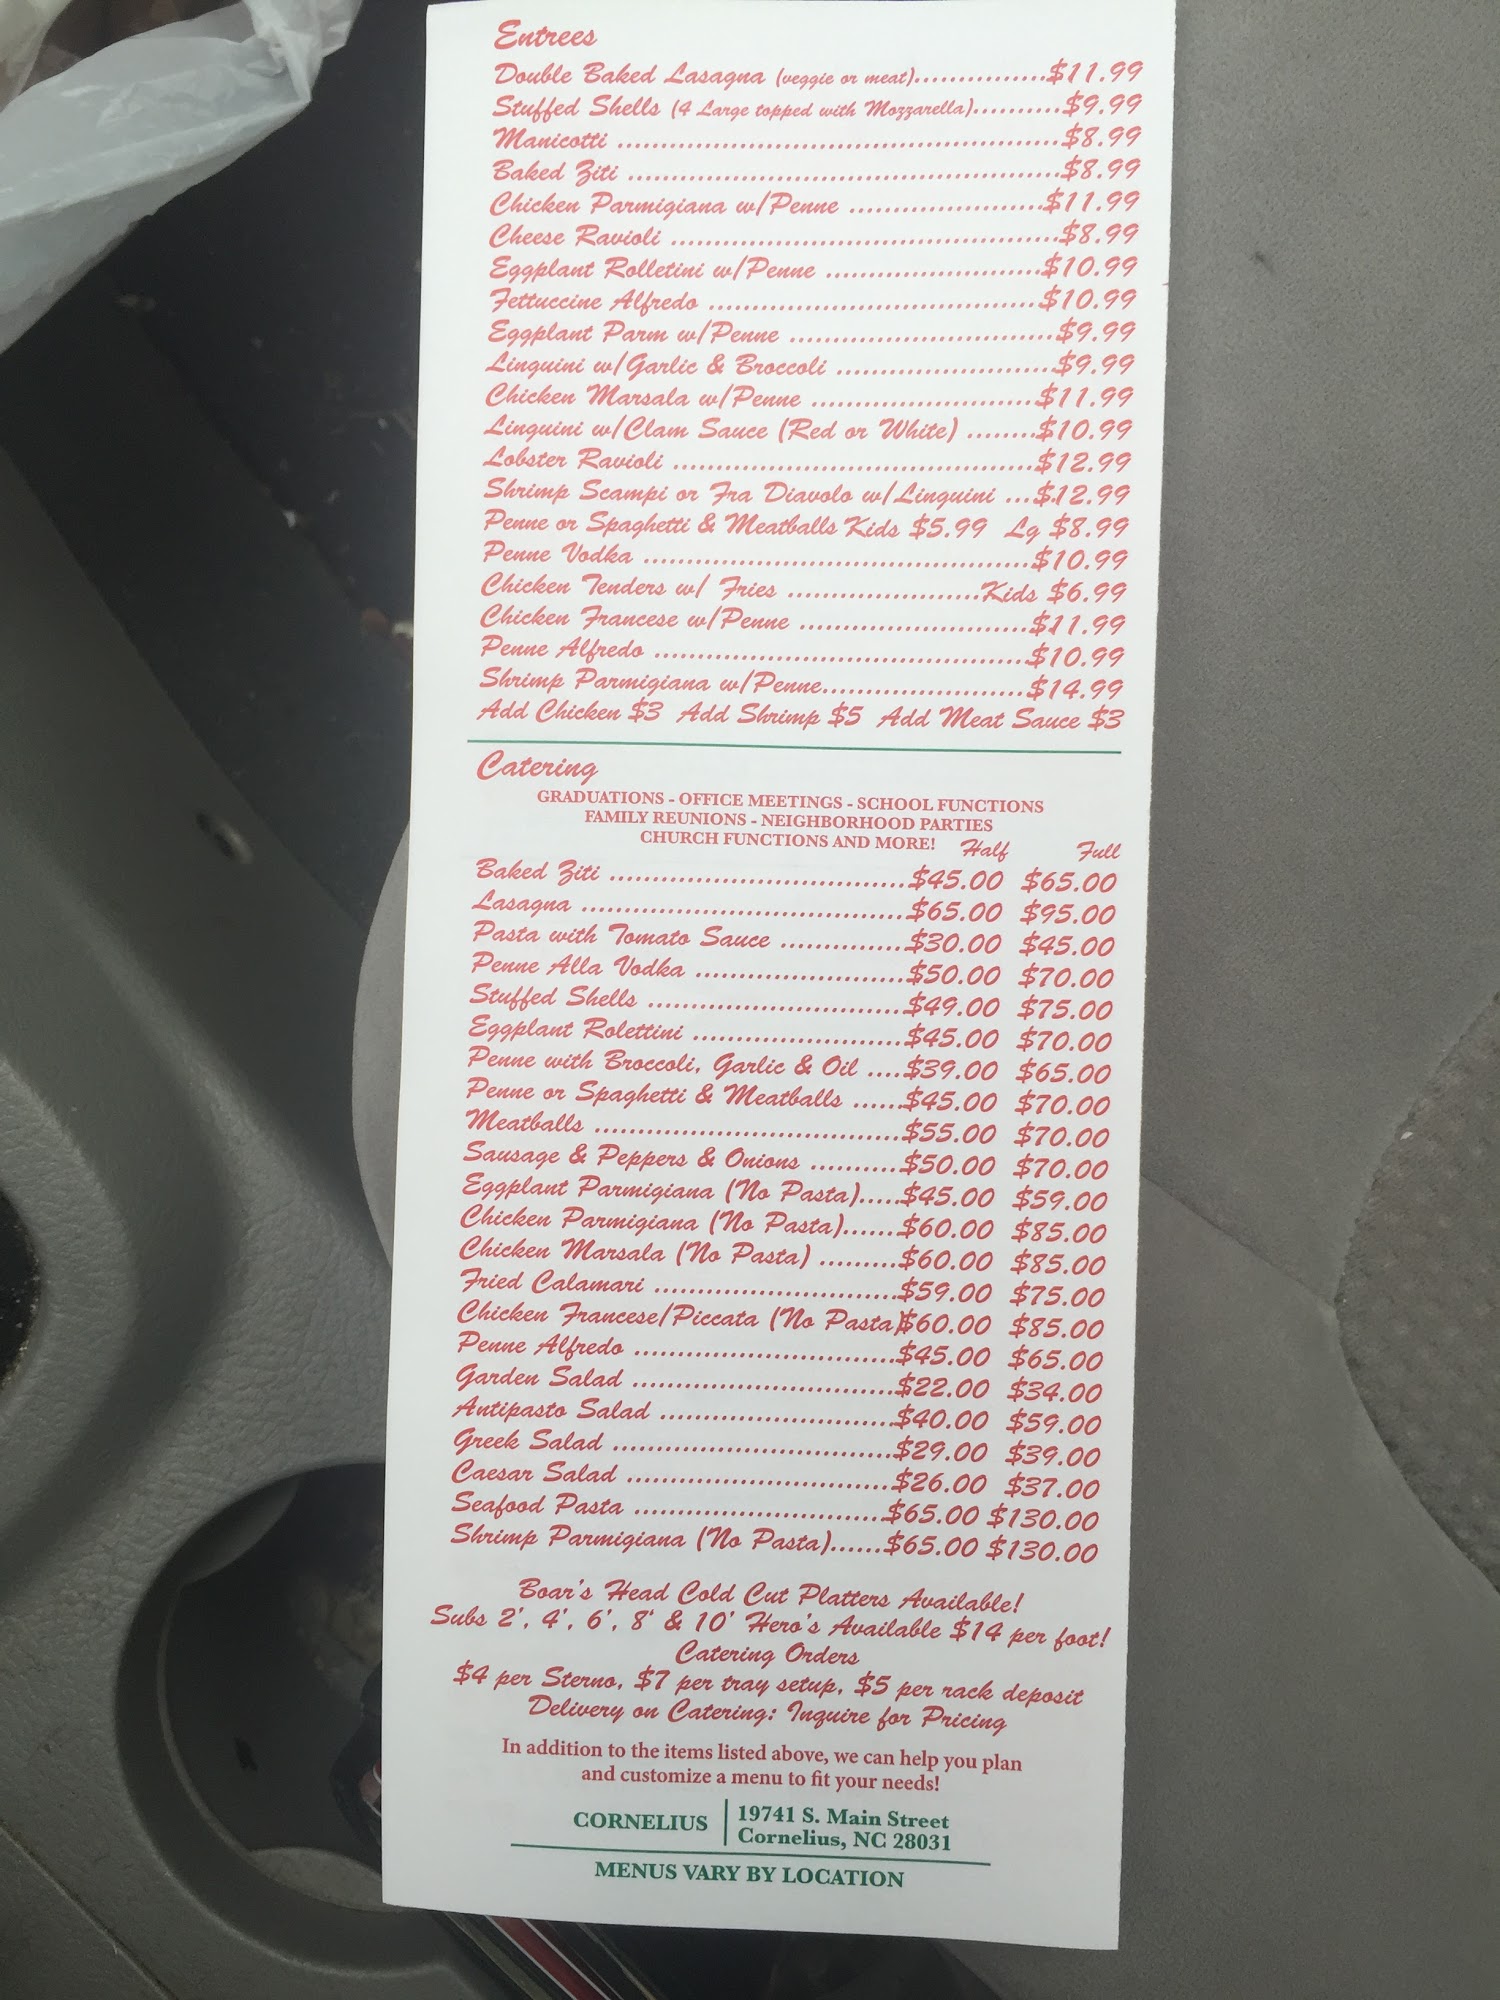 Entrees
Double Baked Lasagna (veggie or meat)...............$11.99
Stuffed Shells (4 Large topped with Mozzarella)..........$9.99
Manicotti ...................................................$8.99
Baked Ziti ..................................................$8.99
Chicken Parmigiana w/Penne ......................$11.99
Cheese Ravioli .............................................$8.99
Eggplant Rolletini w/Penne .........................$10.99
Fettuccine Alfredo ......................................$10.99
Eggplant Parm w/Penne ...............................$9.99
Linguini w/Garlic & Broccoli .........................$9.99
Chicken Marsala w/Penne ..........................$11.99
Linguini w/Clam Sauce (Red or White) ........$10.99
Lobster Ravioli ..........................................$12.99
Shrimp Scampi or Fra Diavolo w/Linguini ...$12.99
Penne or Spaghetti & Meatballs Kids $5.99 Lg $8.99
Penne Vodka .............................................$10.99
Chicken Tenders w/ Fries ......................Kids $6.99
Chicken Francese w/Penne ...........................$11.99
Penne Alfredo ...........................................$10.99
Shrimp Parmigiana w/Penne.......................$14.99
Add Chicken $3 Add Shrimp $5 Add Meat Sauce $3
Catering
GRADUATIONS - OFFICE MEETINGS - SCHOOL FUNCTIONS
FAMILY REUNIONS - NEIGHBORHOOD PARTIES
CHURCH FUNCTIONS AND MORE! Half Full
Baked Ziti ..................................$45.00 $65.00
Lasagna .....................................$65.00 $95.00
Pasta with Tomato Sauce ..............$30.00 $45.00
Penne Alla Vodka ........................$50.00 $70.00
Stuffed Shells .............................$49.00 $75.00
Eggplant Rolettini ........................$45.00 $70.00
Penne with Broccoli, Garlic & Oil ....$39.00 $65.00
Penne or Spaghetti & Meatballs ......$45.00 $70.00
Meatballs ...................................$55.00 $70.00
Sausage & Peppers & Onions ..........$50.00 $70.00
Eggplant Parmigiana (No Pasta).....$45.00 $59.00
Chicken Parmigiana (No Pasta)......$60.00 $85.00
Chicken Marsala (No Pasta) .........$60.00 $85.00
Fried Calamari ............................$59.00 $75.00
Chicken Francese/Piccata (No Pasta)$60.00 $85.00
Penne Alfredo ..............................$45.00 $65.00
Garden Salad ..............................$22.00 $34.00
Antipasto Salad ...........................$40.00 $59.00
Greek Salad ................................$29.00 $39.00
Caesar Salad ...............................$26.00 $37.00
Seafood Pasta .............................$65.00 $130.00
Shrimp Parmigiana (No Pasta)......$65.00 $130.00
Boar's Head Cold Cut Platters Available!
Subs 2', 4', 6', 8' & 10' Hero's Available $14 per foot!
Catering Orders
$4 per Sterno, $7 per tray setup, $5 per rack deposit
Delivery on Catering: Inquire for Pricing
In addition to the items listed above, we can help you plan
and customize a menu to fit your needs!
CORNELIUS
19741 S. Main Street
Cornelius, NC 28031
MENUS VARY BY LOCATION